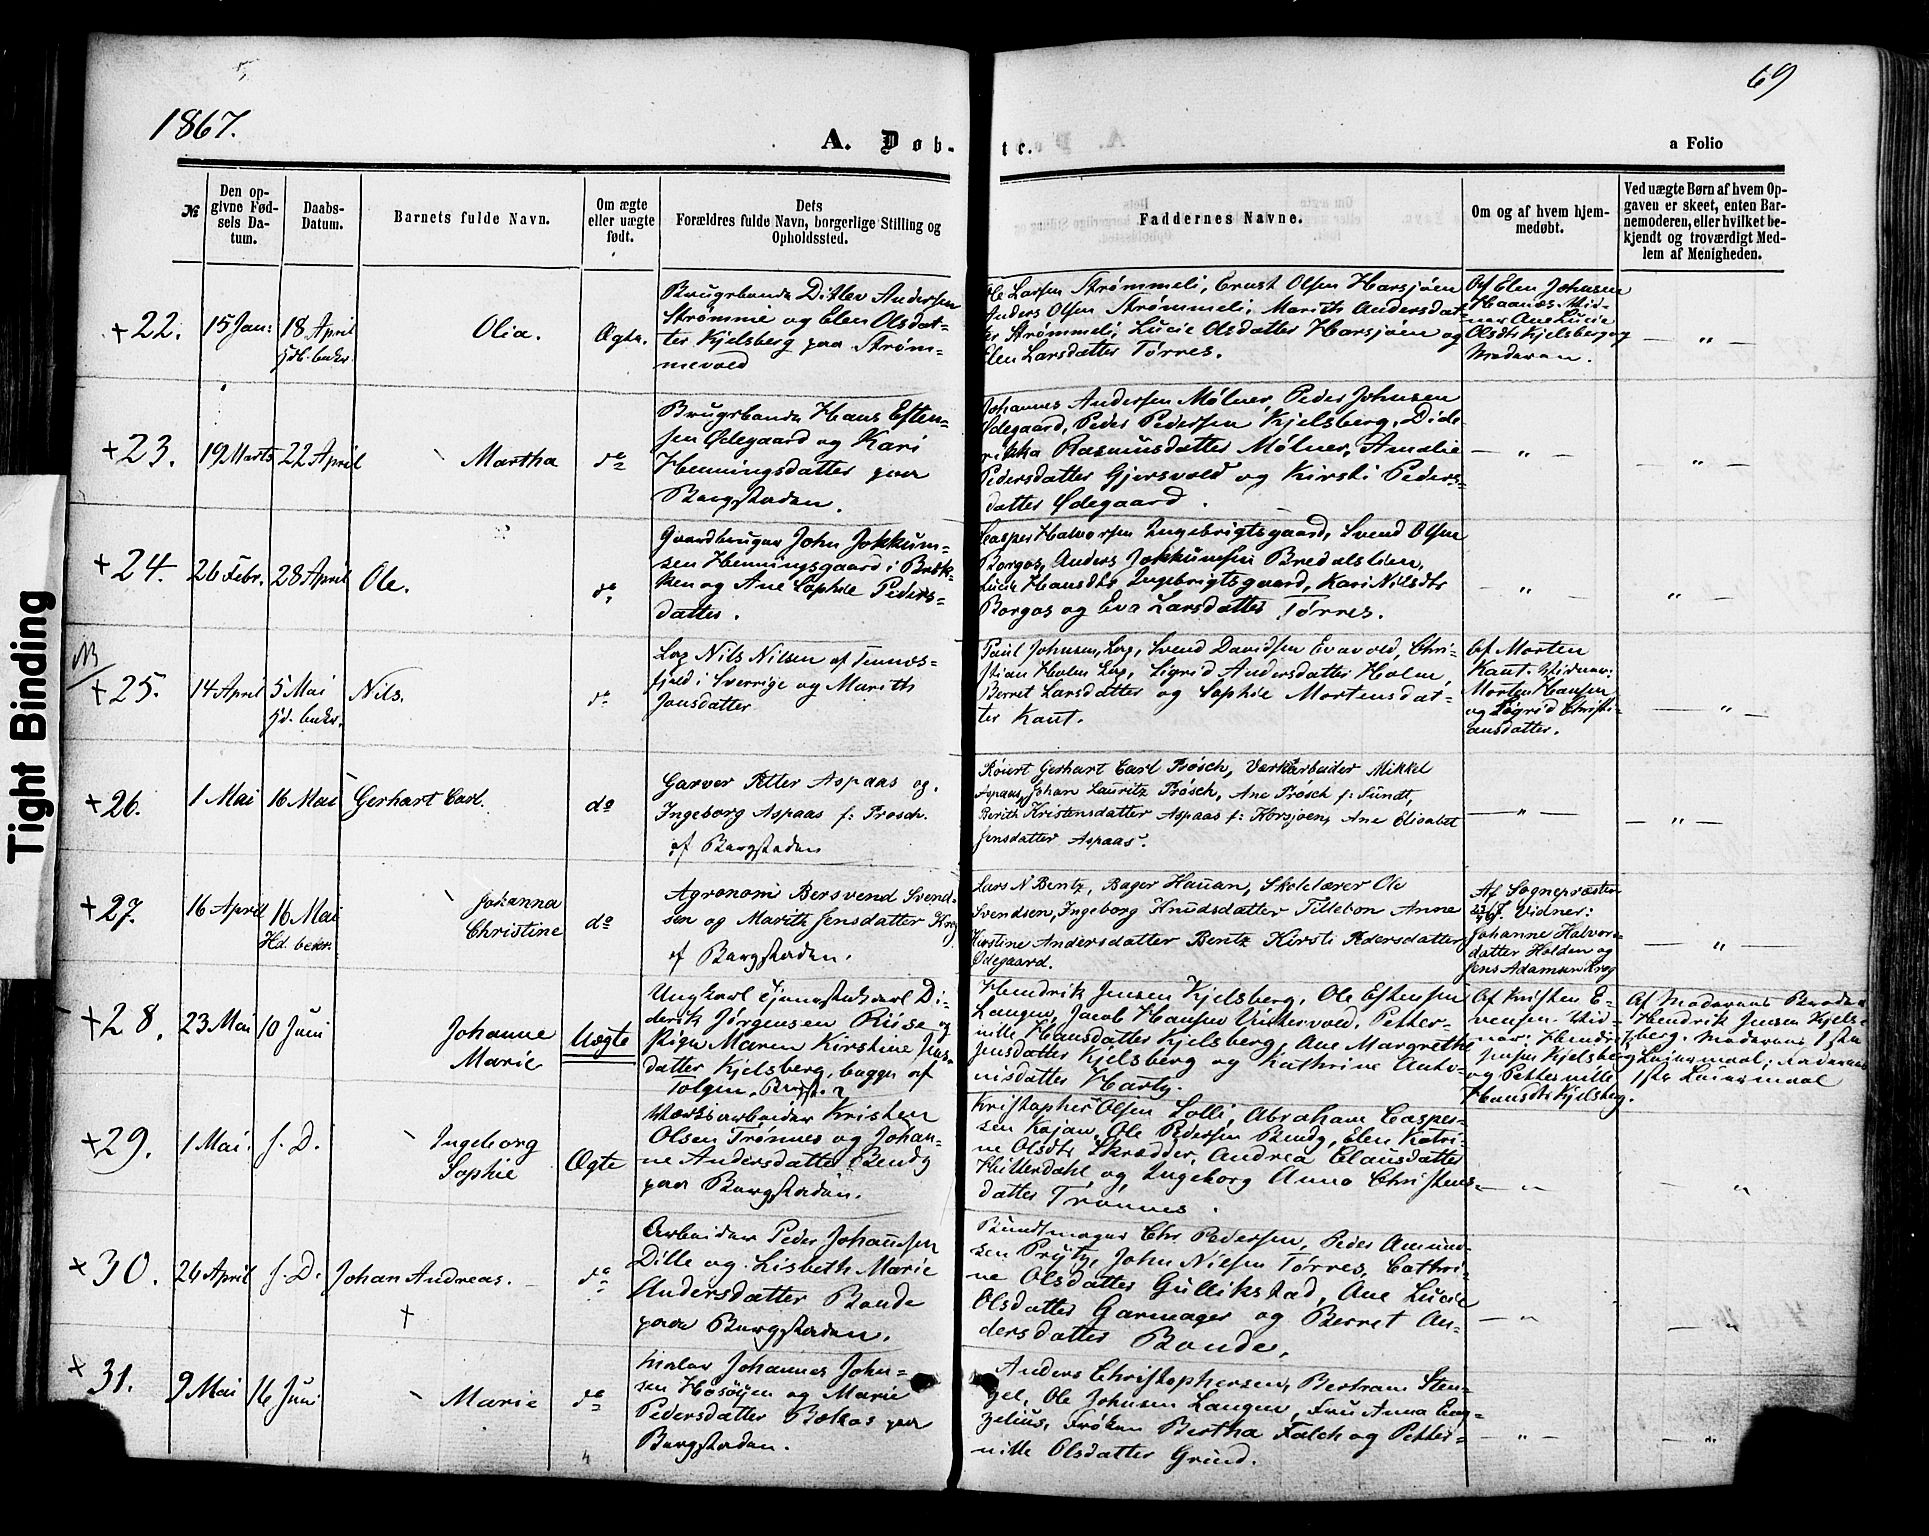 69
1867.
A. Døb-
te.
a Folio
№
Den op-
givne Fød-
sels Da-
tum.
Daabs-
Datum.
Barnets fulde Navn.
Om ægte
eller uægte
født.
Dets
Forældres fulde Navn, borgerlige Stilling og
Opholdssted.
Faddernes Navne.
Om og af hvem hjem-
medøbt.
Ved uægte Børn af hvem Op-
gaven er skeet, enten Bar-
nemoderen, eller hvilket be-
kjendt og troværdigt Med-
lem af Menigheden.
+ 22.
15 Jan:
18 April
hd. bekr.
Olia.
Ægte.
Brugsbonde Ditlev Andersen
Strømme og Elen Olsdat-
ter Kjelsberg paa Strøm-
mevold
Ole Larsen Strømmeli, Ernst Olsen Harsjøen
Anders Olsen Strømmeli, Marith Andersdat-
ter Strømmeli, Lucie Olsdatter Harsjøen og
Elen Larsdatter Tørres.
Af Elen Johnsen
Haanæs. Vid-
ner Ane Lucie
Olsdtr Kjelsberg og
Moderen.
— " —
+ 23.
19 Marts
22 April
Martha
do
Brugsbonde Hans Esten-
sen Ødegaard og Kari
Henningsdatter paa
Bergstaden.
Johannes Andersen Mølner, Peder Johnsen
Ødegaard, Peder Pedersen Kjelsberg, Dide-
rikka Rasmusdatter Mølner, Amalie
Pedersdatter Gjersvold og Kirsti Peders-
datter Ødegaard.
— " —
— " —
+ 24.
26 Febr.
28 April
Ole.
do
Gaardbruger John Jokkum-
sen Henningsgaard i Bræk-
ken og Ane Sophie Peders-
datter.
Casper Halvorsen Ingebrigtsgaard, Svend Olsen
Borgos, Anders Jokkumsen Bredalslien,
Lucie Hansdtr Ingebrigtsgaard, Kari Nilsdtr
Borgos og Eva Larsdatter Tørres.
— " —
" —
NB
+ 25.
14 April
5 Mai
hd. bekr.
Nils.
do
Lap Nils Nilsen af Tennæs-
fjeld i Sverrige og Marith
Jonsdatter
Paul Johnsen, Lap, Svend Davidsen Evavold, Chri-
stian Holm Lap, Sigrid Andersdatter Holm,
Berret Larsdatter og Sophie Mortensdat-
ter Kant.
Af Morten
Kant. Vidner:
Morten Hansen
og Sigrid Christi-
ansdatter.
— " —
+ 26.
1 Mai
16 Mai
Gerhart Carl.
do
Garver Petter Aspaas og
Ingeborg Aspaas f: Prøsch.
af Bergstaden
Gerhart Carl Prøsch, Værksarbeider Mikkel
Aspaas, Johan Lauritz Prøsch, Ane Prøsch f: Sundt,
Berith Kristensdatter Aspaas f: Korsjøen, Ane Elisabet
Jensdatter Aspaas.
— " —
— " —
+ 27.
16 April
16 Mai
Hd. bekr.
Johanna
Christine
do
Agronom Bersvend Svend-
sen og Marith Jensdatter Krog
af Bergstaden.
Lars N Bentz, Bager Hauan, Skolelærer Ole
Svendsen, Ingeborg Knudsdatter Tillebon Anne
Kirstine Andersdatter Bentz Kirsti Pedersdatter
Ødegaard.
Af Sognepræsten
Vidner:
Johanne Halvors-
datter Holden og
Jens Adamsen Krog
— " —
+ 28.
23 Mai
10 Juni
Johanne
Marie
Uægte
Ungkarl Tjenestekarl Di-
derik Jørgensen Riise og
Pige Maren Kirstine Jens-
datter Kjelsberg, begge af
Tolgen. Bergst.?
Hendrik Jensen Kjelsberg, Ole Estensen
Langen, Jacob Hansen Vintervold, Petter-
nille Hansdatter Kjelsberg, Ane Margrethe
Jensdatter Kjelsberg og Kathrine Anto-
nisdatter Harty.
Af Kristen E-
vensen. Vid-
ner: Hendrik
Jensen Kjelsberg
og Petternille
Hansdtr Kjelsberg.
Af Moderens Broder
Hendrik Jensen Kjels-
berg. Moderens 1ste
Leiermaal; Faderens
1ste Leiermaal
+ 29.
1 Mai.
s. D.
Ingeborg
Sophie
Ægte
Værksarbeider Kristen
Olsen Trønnes og Johan-
ne Andersdatter Bendy
paa Bergstaden.
Kristopher Olsen Lolli, Abraham Casper-
sen Kojan, Ole Pedersen Bendy, Elen Katri-
ne Olsdtr Skrædder, Andrea Clausdatter
Hitterdahl og Ingeborg Anna Christens-
datter Trønnes.
— " —
— "
+ 30.
26 April
s. D.
Johan Andreas.
+
do
Arbeider Peder Johansen
Dille og Lisbeth Marie
Andersdatter Bonde
paa Bergstaden.
Bundtmager Chr Pedersen, Peder Amund-
sen Prytz, John Nilsen Tørres, Cathri-
ne Olsdatter Gullikstad, Ane Lucie
Olsdatter Garmager og Berret An-
dersdatter Bonde.
— "
— "
+ 31.
9 Mai
16 Juni
Marie
do
Maler Johannes John-
sen Hosøyen og Marie
Pedersdatter Bekos paa
Bergstaden.
Anders Christophersen, Bertram Sten-
gel, Ole Johnsen Langen, Fru Anna Eng-
zelius, Frøken Bertha Falch og Petter-
nille Olsdatter Grind.
— " —
— "
4
Tight Binding